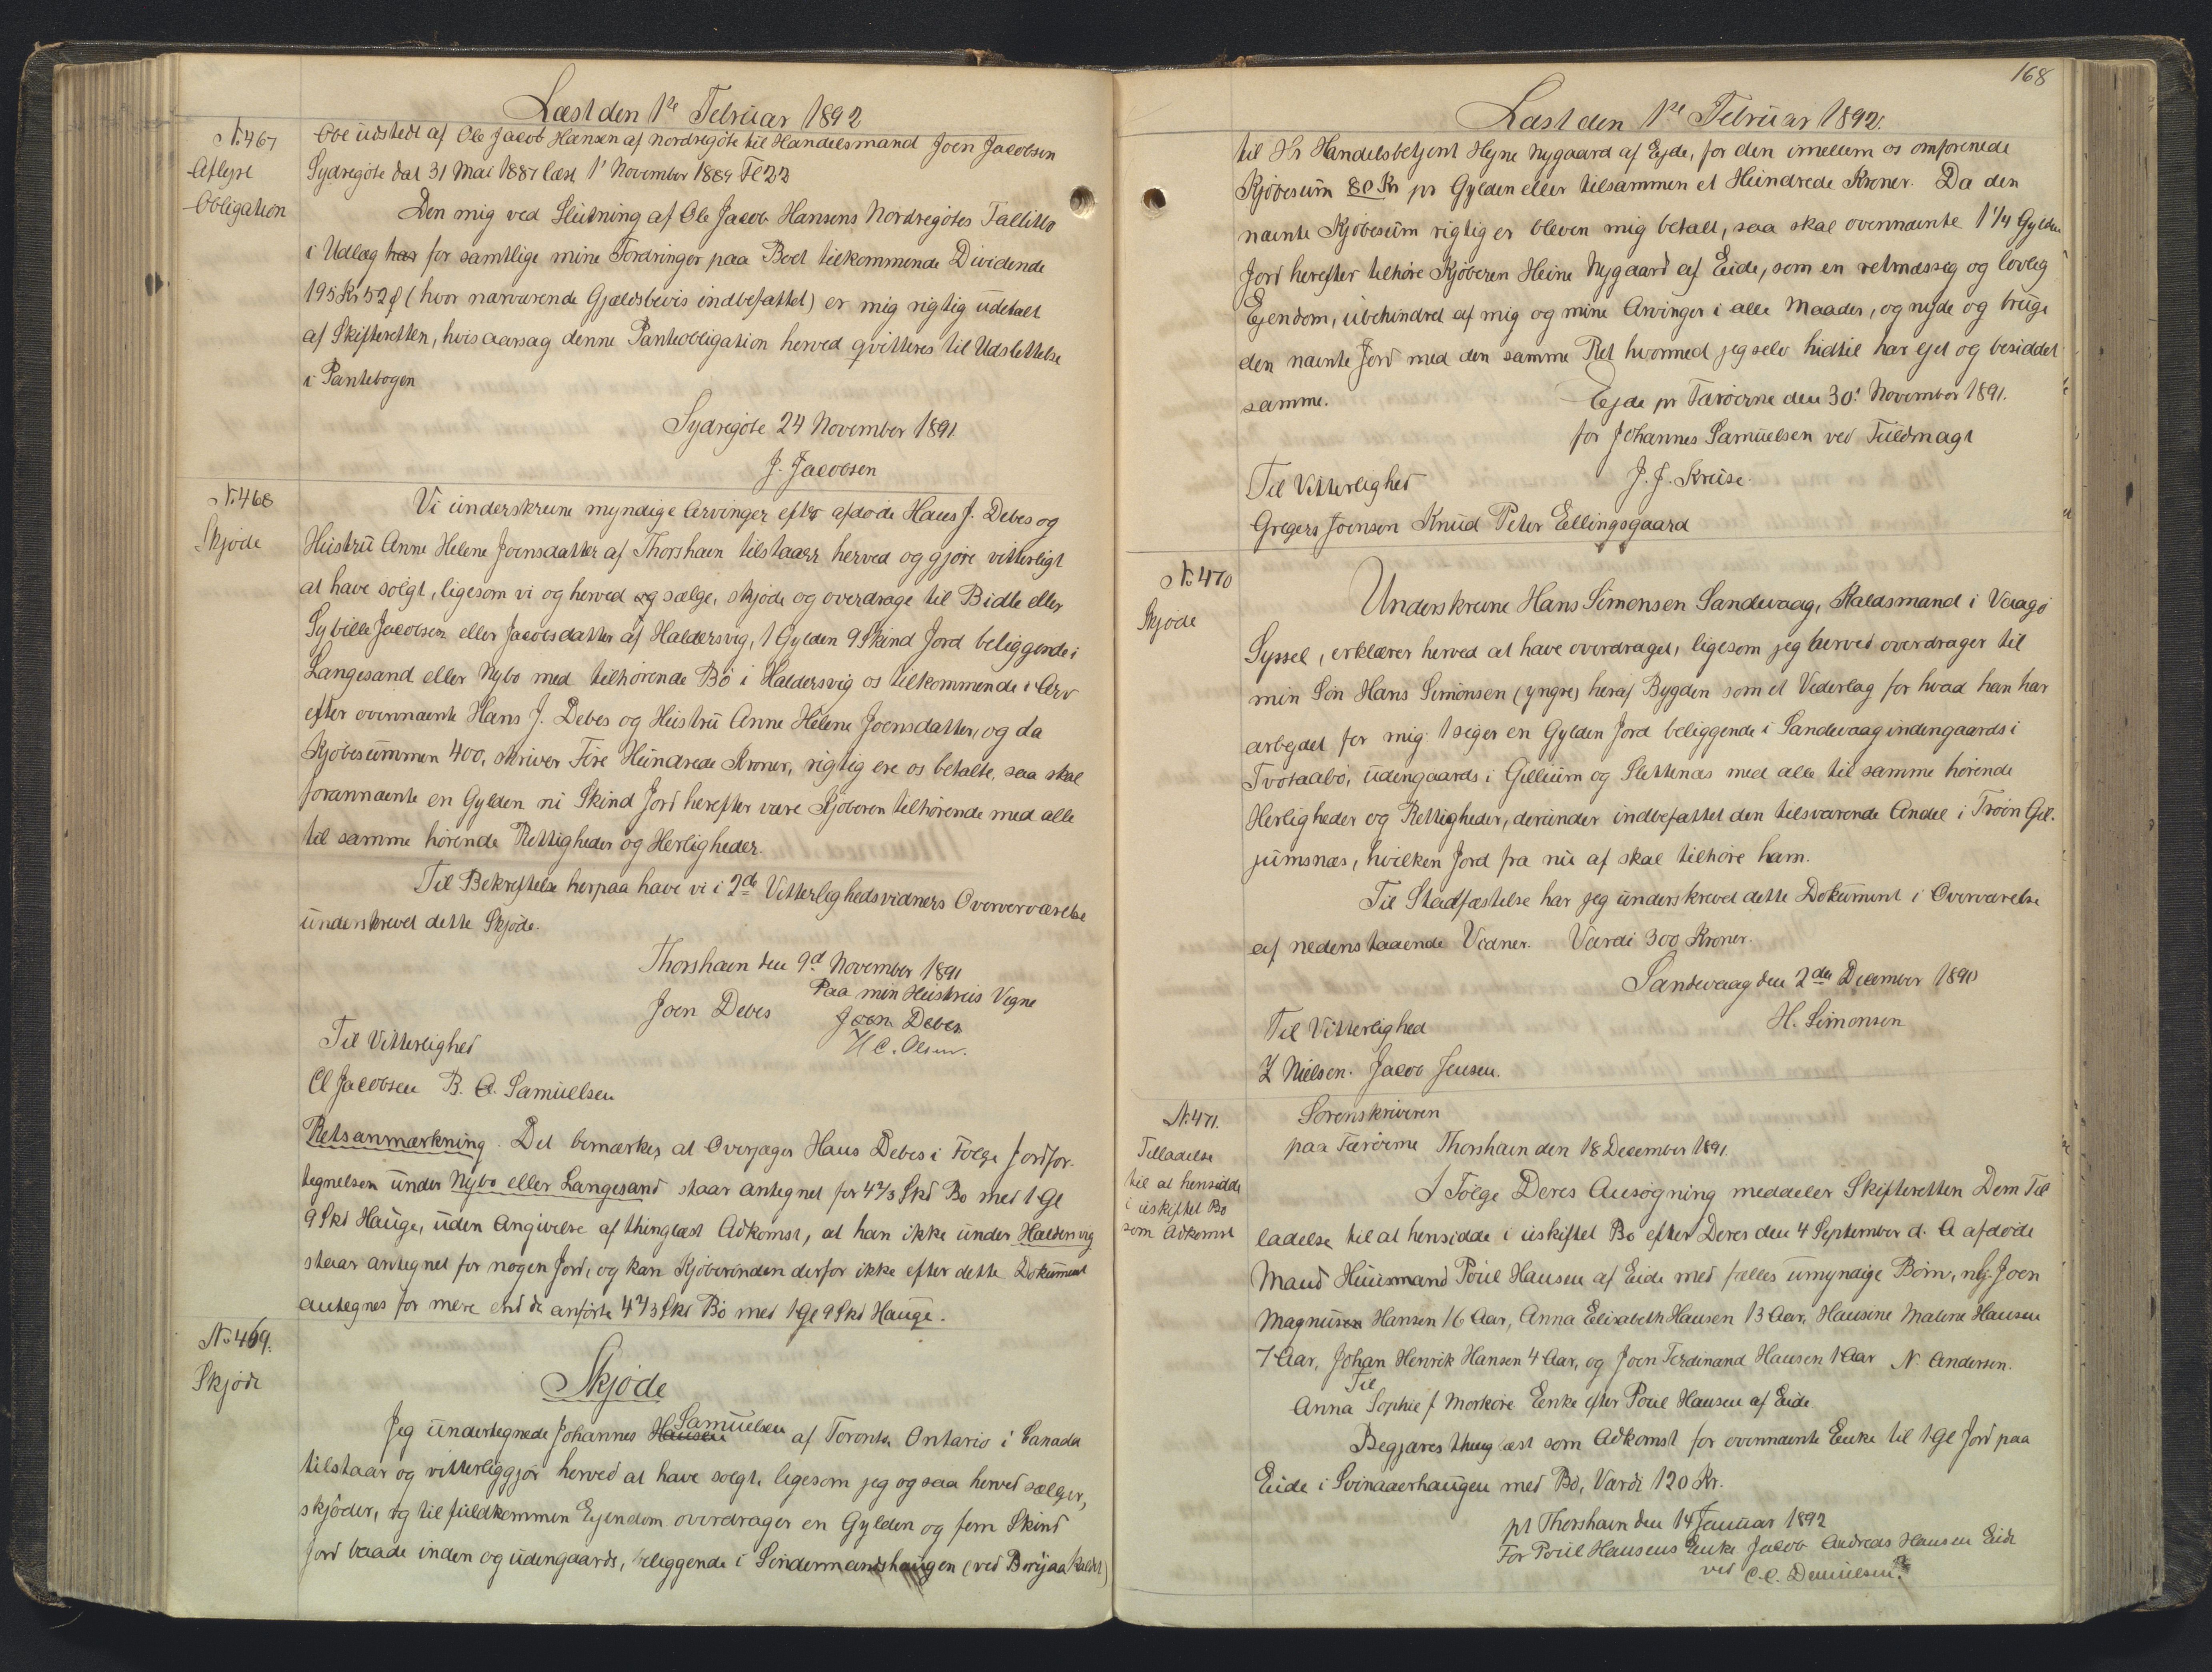 Læst den 1te Februar 1892
No 467
Aflyst
Obligation
Obl udstedt af Ole Jacob Hansen af Nordregöte til Handelsmand Joen Jacobsen
Sydregöte dat 31 Mai 1887 læst 1' November 1889 Fl 22
Den mig ved Slutning af Ole Jacob Hansens Nordregötes Fallitbo
i Udlæg har for samtlige mine Fordringer paa Boet tilkommende Dividende
195 Kr 52 ø (hvor nærværende Gjældsbevis indbefattet) er mig rigtig udbetalt
af Skifteretten, hvisaarsag denne Panteobligation herved qvitteres til Udslettelse
i Pantebogen
Sydregöte 24 November 1891.
J. Jacobsen
No 468
Skjøde
Vi underskrevne myndige Arvinger efter afdøde Hans J. Debes og
Hustru Anne Helene Joensdatter af Thorshavn tilstaaer herved og gjøre vitterligt
at have solgt, ligesom vi og herved og sælge, skjøde og overdrage til Bidte eller
Sybille Jacobsen eller Jacobsdatter af Haldersvig, 1 Gylden 9 Skind Jord beliggende i
Langesand eller Nybo med tilhørende Bö i Haldersvig os tilkommende i Arv
efter ovennævnte Hans J. Debes og Hustru Anne Helene Joensdatter, og da
Kjöbesummen 400, skriver Fire Hundrede Kroner, rigtig ere os betalte, saa skal
forannævnte en Gylden ni Skind Jord herefter være Kjøberen tilhørende med alle
til samme hørende Rettigheder og Herligheder.
Til Bekræftelse herpaa have vi i 2de Vitterlighedsvidners Overværelse
underskrevet dette Skjøde.
Thorshavn den 9d November 1891
Paa min Hustrus Vegne
Joen Debes Joen Debes
H C. Olsen.
Til Vitterlighed
Cl Jacobsen B. A. Samuelsen
Retsanmærkning. Det bemærkes at Overjæger Hans Debes i Følge Jordfor-
tegnelsen under Nybo eller Langesand staar antegnet for 4 2/3 Skd Bo med 1 Gl
9 Skd Hauge, uden Angivelse af thinglæst Adkomst, at han ikke under Haldersvig
staar antegnet for nogen Jord, og kan Kjøberinden derfor ikke efter dette Dokument
antegnes for mere end de anførte 4 2/3 Skd Bö med 1 Gl 9 Skd Hauge.
No 469.
Skjøde
Skjøde
Jeg undertegnede Johannes Hansen Samuelsen af Toronto Ontario i Canada
tilstaar og vitterliggjör herved at have solgt, ligesom jeg og saa herved sælger,
skjöder, og til fuldkommen Ejendom overdrager en Gylden og fem Skind
Jord baade inden og udengaards, beliggende i Sindermandshaugen (ved kaldet)
168
Læst den 1te Februar 1892.
til Hr Handelsbetjent Hejne Nygaard af Ejde, for den imellem os omforenede
Kjøbesum 80 Kr pr Gylden eller tilsammen et Hundrede Kroner. Da den
nævnte Kjøbesum rigtig er bleven mig betalt, saa skal ovennævnte 1 1/4 Gylden
Jord herefter tilhøre Kjøberen Heine Nygaard af Eide, som en retmæssig og lovlig
Ejendom, ubehindret af mig og mine Arvinger i alle Maader, og nyde og bruge
den nævnte Jord med den samme Ret hvormed jeg selv hidtil har ejet og besiddet
samme.
Ejde pr Færöerne den 30' November 1891.
for Johannes Samuelsen ved Fuldmagt
J. J. Kruse.
Til Vitterlighed
Gregers Joensen Knud Peter Ellingsgaard
No 470
Skjøde
Underskrevne Hans Simonsen Sandevaag, Raldsmand i Vaagö
Syssel, erklærer herved at have overdraget, ligesom jeg herved overdrager til
min Sön Hans Simonsen (yngre) heraf Bygden som et Vederlag for hvad han har
arbejdet for mig 1 siger en Gylden Jord beliggende i Sandevaag indengaards i
Tvøraabö, udengaards i Gillium og Slettenæs med alle til samme hørende
Herligheder og Rettigheder, derunder indbefattet den tilsvarende Andel i Tröin Gil-
jumsnæs, hvilken Jord fra nu af skal tilhøre ham.
Til Stadfæstelse har jeg underskrevet dette Dokument i Overværelse
af nedenstaaende Vidner. Værdi 300 Kroner.
Sandevaag den 2den December 1890
H. Simonsen
Til Vitterlighed
Z Nielsen. Jacob Jensen.
No 471.
Tilladelse
til at hensidde
i uskiftet Bo
som Adkomst
Sorenskriveren
paa Færöerne Thorshavn den 18 December 1891.
I Følge Deres Ansøgning meddeler Skifteretten Dem Til
ladelse til at hensidde i uskiftet Bo efter Deres den 4 September d. A afdøde
Mand Huusmand Poul Hansen af Eide med fælles umyndige Börn, nlg. Joen
Magnus Hansen 16 Aar, Anna Elisabeth Hansen 13 Aar, Hansine Malene Hansen
7 Aar, Johan Henrik Hansen 4 Aar, og Joen Ferdinand Hansen 1 Aar N. Andersen.
Til
Anna Sophie f Morköre Enke efter Poul Hansen af Eide
Begjæres thinglæst som Adkomst for ovennævnte Enke til 1 Gl Jord paa
Eide i Svinaaerhaugen med Bö, Værdi 120 Kr.
pt Thorshavn den 14 Januar 1892
For Poul Hansens Enke Jacob Andreas Hansen Eide
ved C. C. Danielsen.